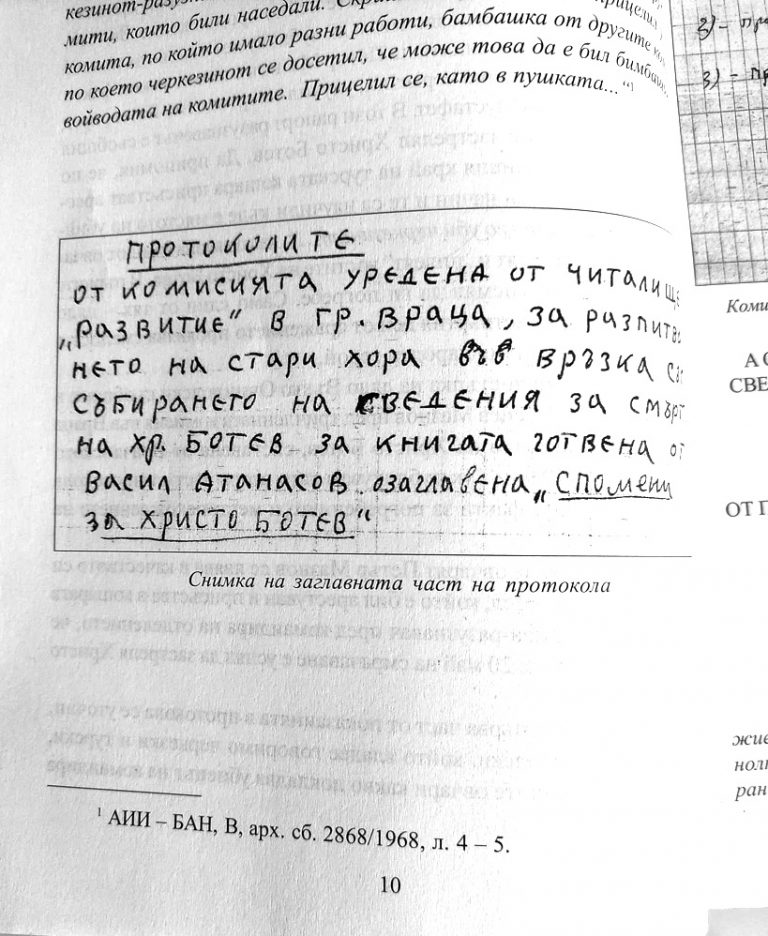 мити, които били наседали.
комита, по който имало разни работи, бамбашка от другите
по което черкезинот се досетил, че може това да е бил бимбаш
войводата на комитите. Прицелил се, като в пушката..."¹
ПРОТОКОЛИТЕ
ОТ КОМИСИЯТА УРЕДЕНА ОТ ЧИТАЛИЩЕ
„РАЗВИТИЕ" В ГР. ВРАЦА, ЗА РАЗПИТВА
НЕТО НА СТАРИ ХОРА ВЪВ ВРЪЗКА СЪС
СЪБИРАНЕТО НА СВЕДЕНИЯ ЗА СМЪРТ
НА ХР. БОТЕВ ЗА КНИГАТА ГОТВЕНА ОТ
ВАСИЛ АТАНАСОВ ОЗАГЛАВЕНА „СПОМЕНИ
ЗА ХРИСТО БОТЕВ"
Снимка на заглавната част на протокола
¹ АИИ – БАН, В, арх. сб. 2868/1968, л. 4 – 5.
10
3) –
Коми
А
СВЕ
ОТ
жив
нол
ран